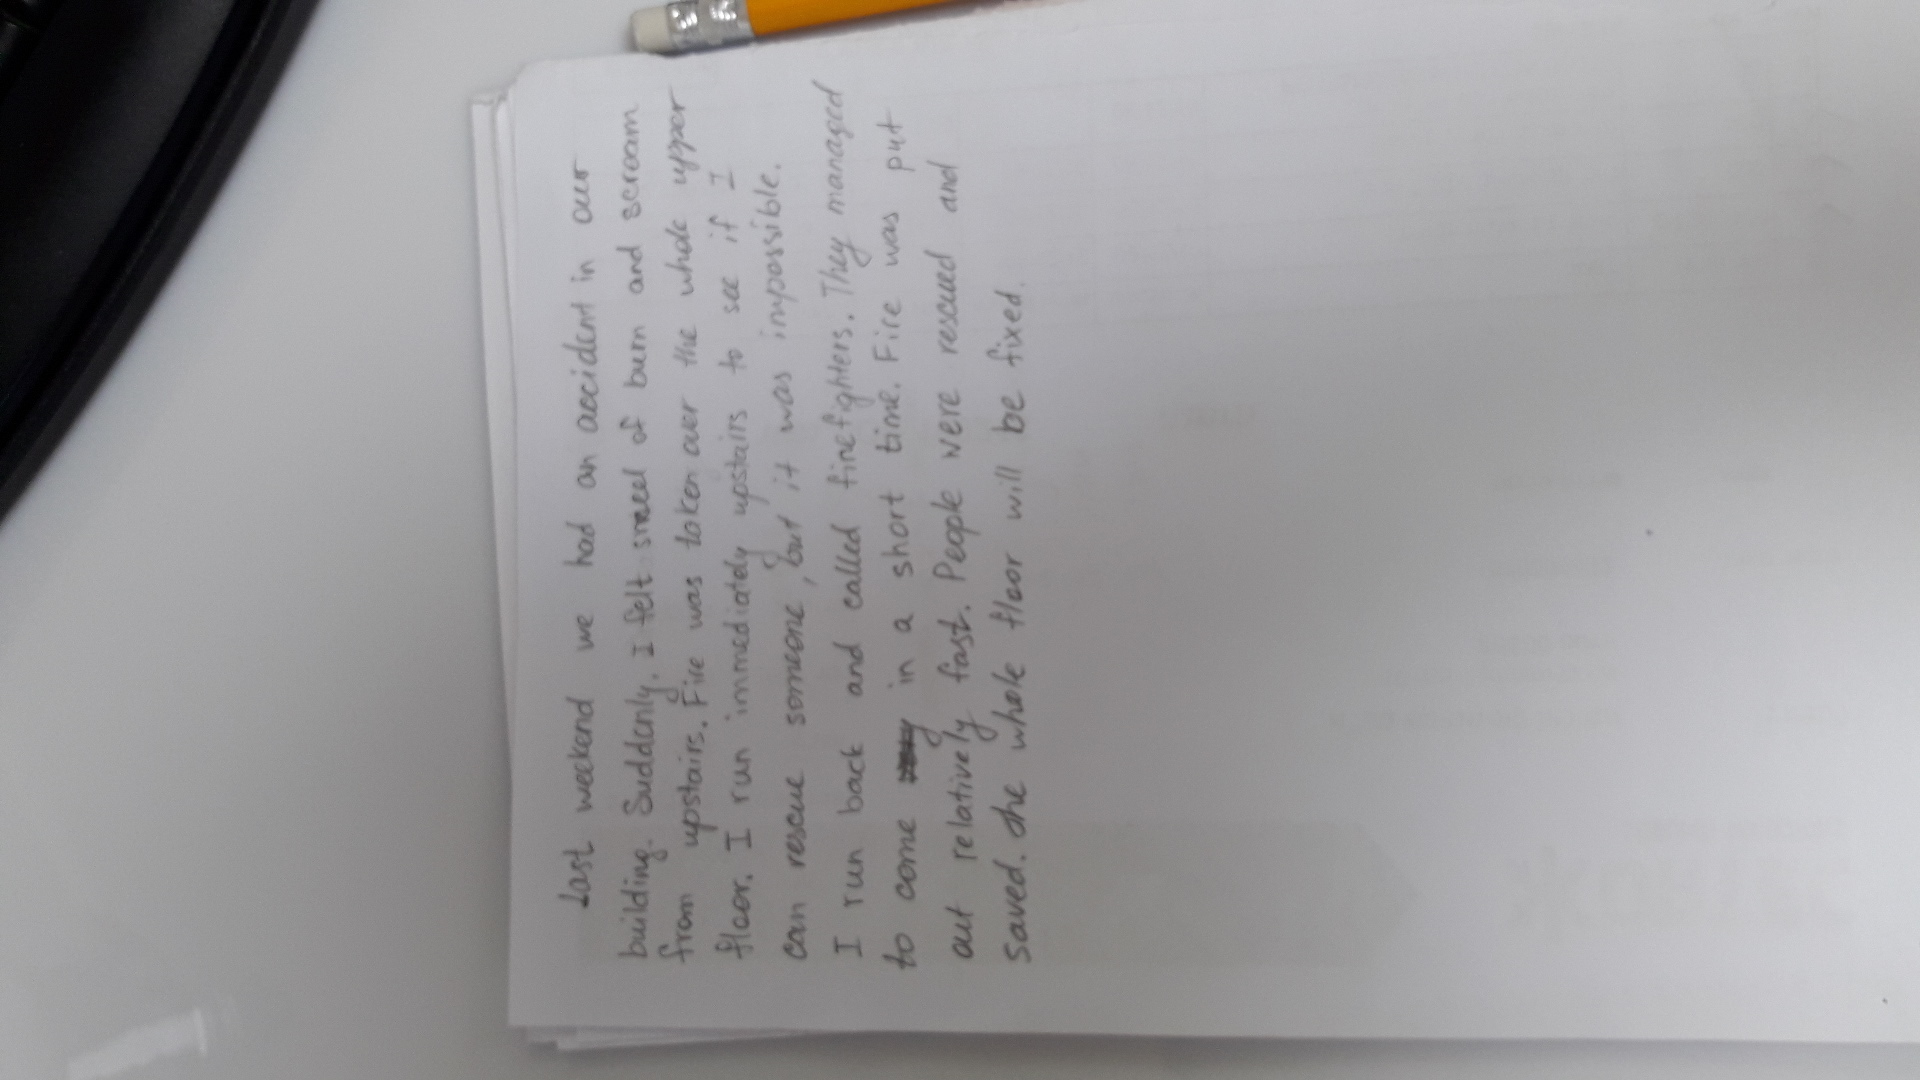 Last weekend we had an accident in our
building. Suddenly, I felt smeel of burn and scream
from upstairs. Fire was token over the whole upper
floor. I run immediately upstairs to see if I
can rescue someone, but it was impossible.
I run back and called firefighters. They managed
to come in a short time. Fire was put
out relatively fast. People were rescued and
saved. The whole floor will be fixed.